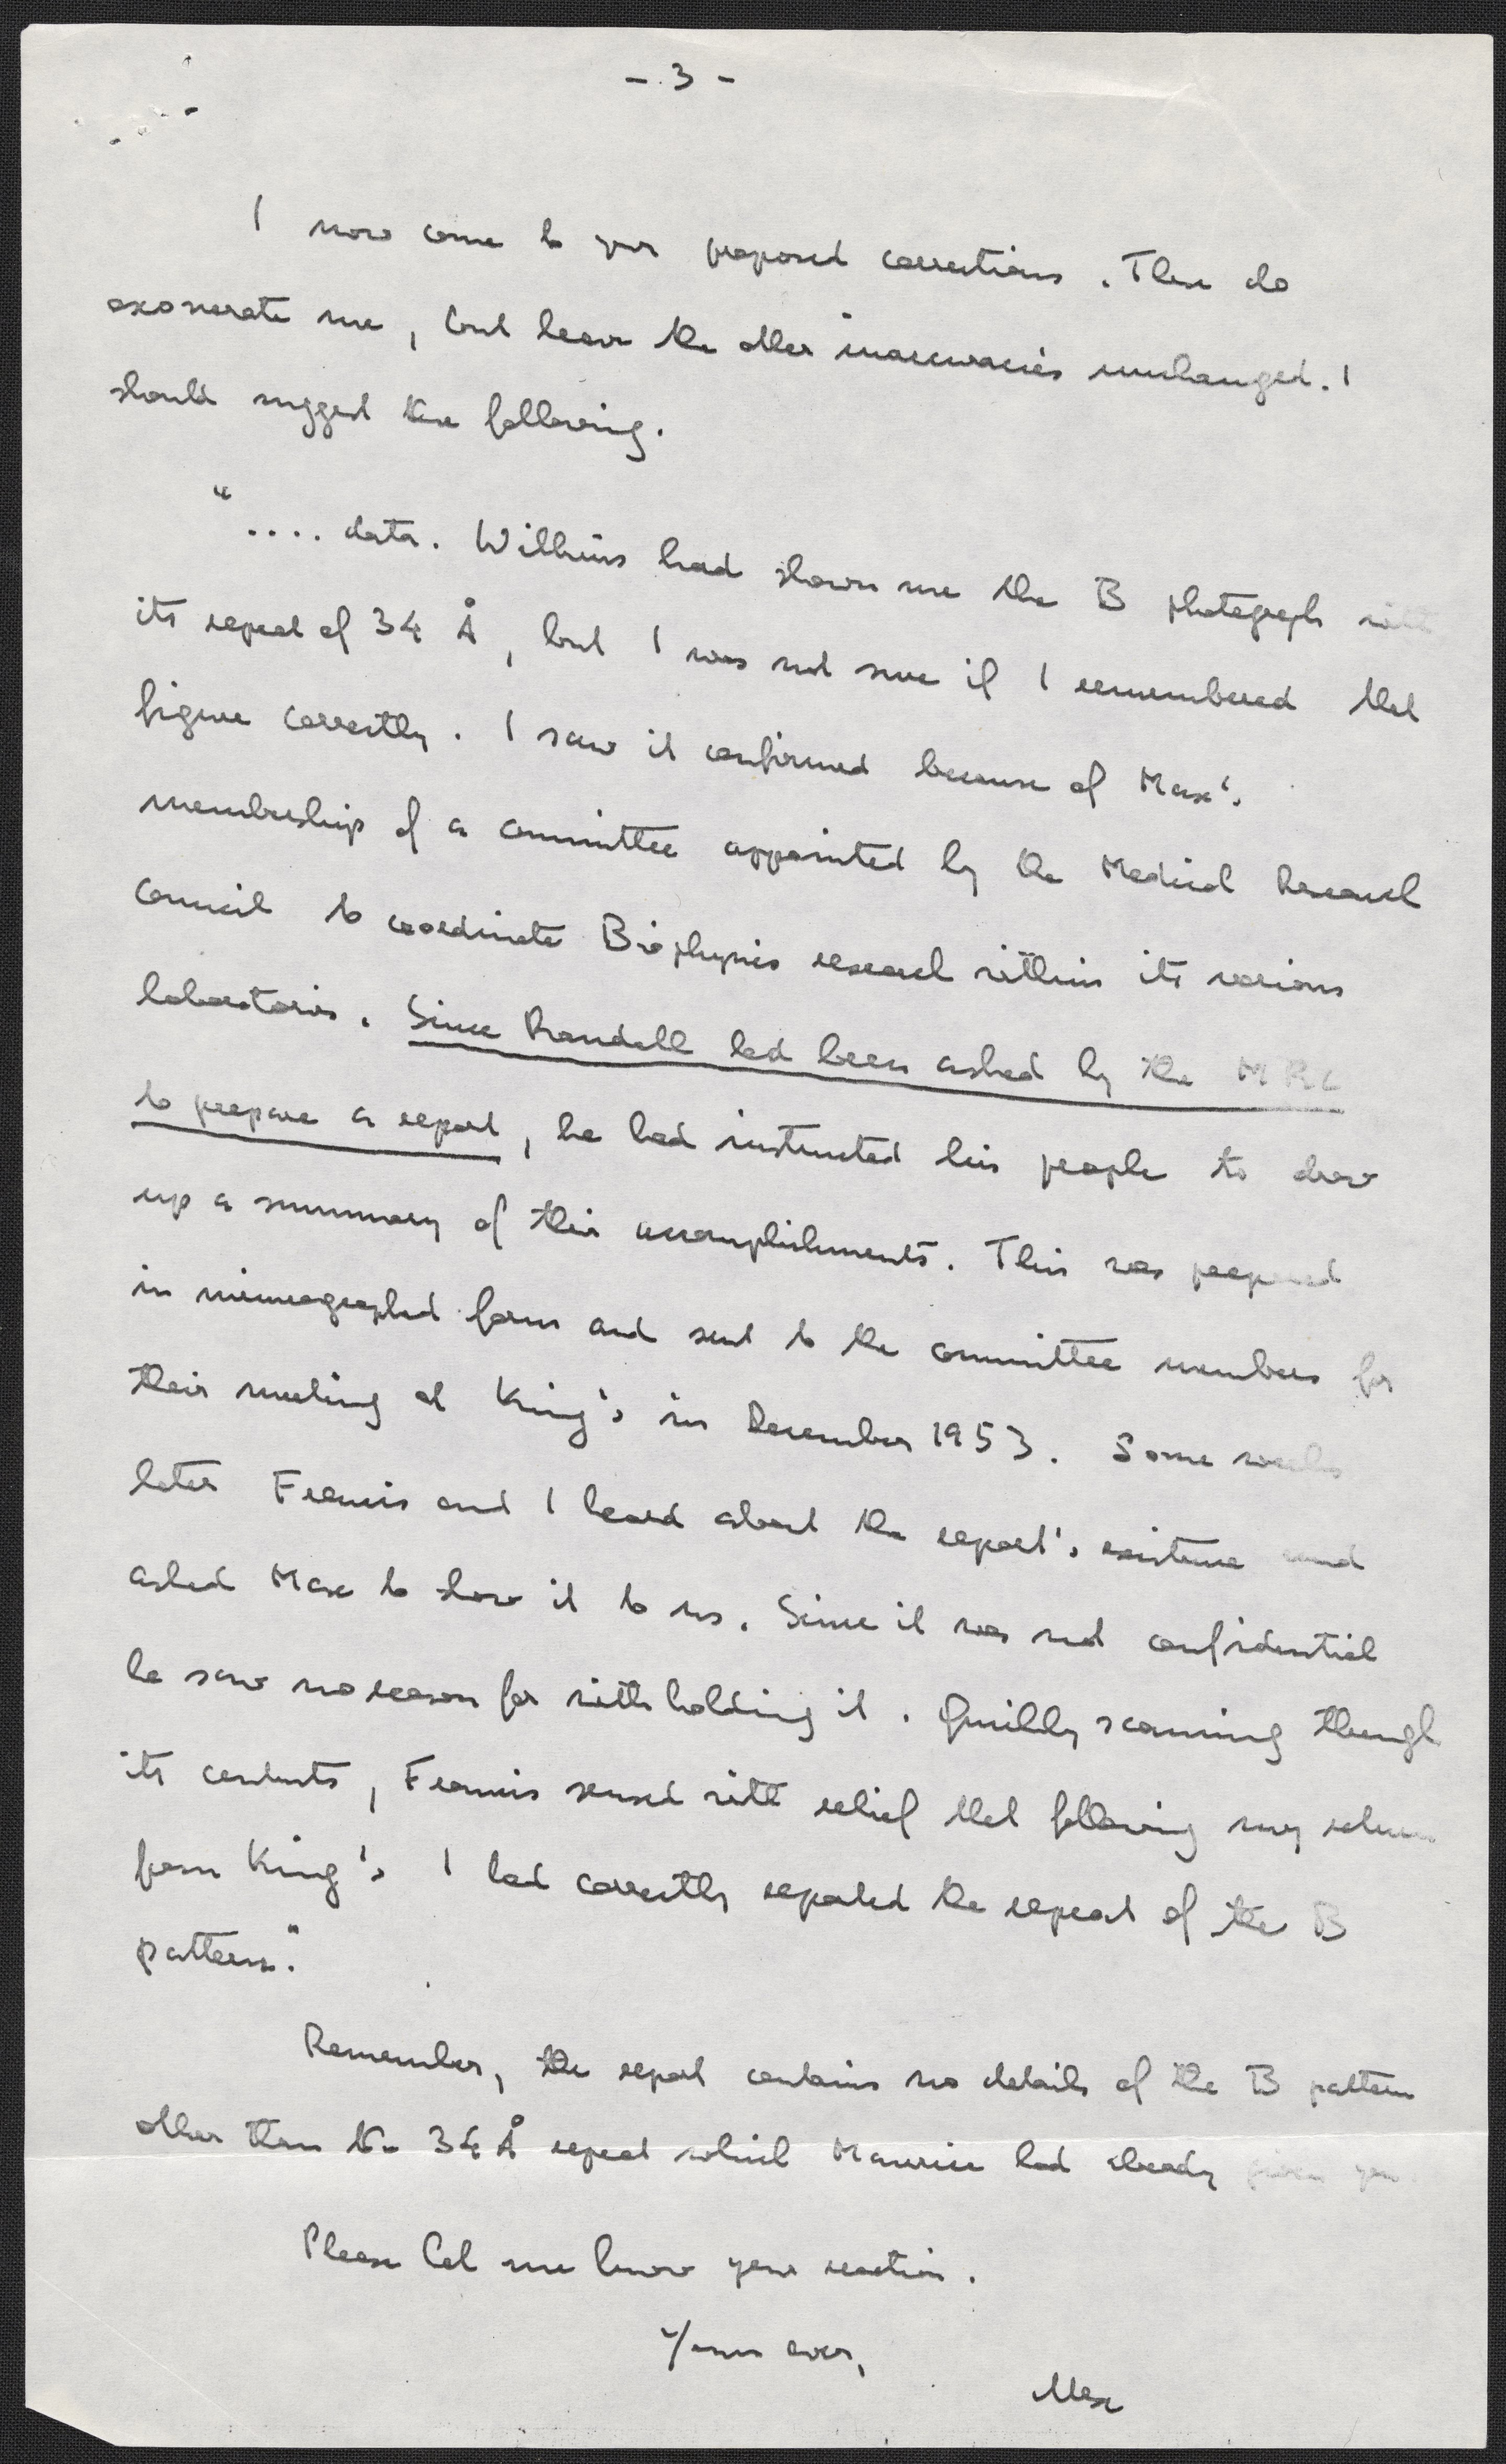 - 3 -
I now come to your proposed corrections. These do
exonerate me, but leave the other inaccuracies unchanged. I
should suggest the following.
".... data. Wilkins had shown me the B photograph with
its repeat of 34 Å, but I was not sure if I remembered that
figure correctly. I saw it confirmed because of Max's
membership of a committee appointed by the Medical Research
Council to coordinate Biophysics research within its various
laboratories. Since Randall had been asked by the MRC
to prepare a report, he had instructed his people to draw
up a summary of their accomplishments. This was prepared
in mimeographed form and sent to the committee members for
their meeting at King's in December 1953. Some weeks
later Francis and I heard about the report's existence and
asked Max to show it to us. Since it was not confidential
he saw no reason for withholding it. Quickly scanning through
its contents, Francis sensed with relief that following my return
from King's I had correctly reported the repeat of the B
pattern."
Remember, the report contains no details of the B pattern
other than the 34 Å repeat which Maurice had already given you.
Please let me know your reaction.
Yours ever,
Max